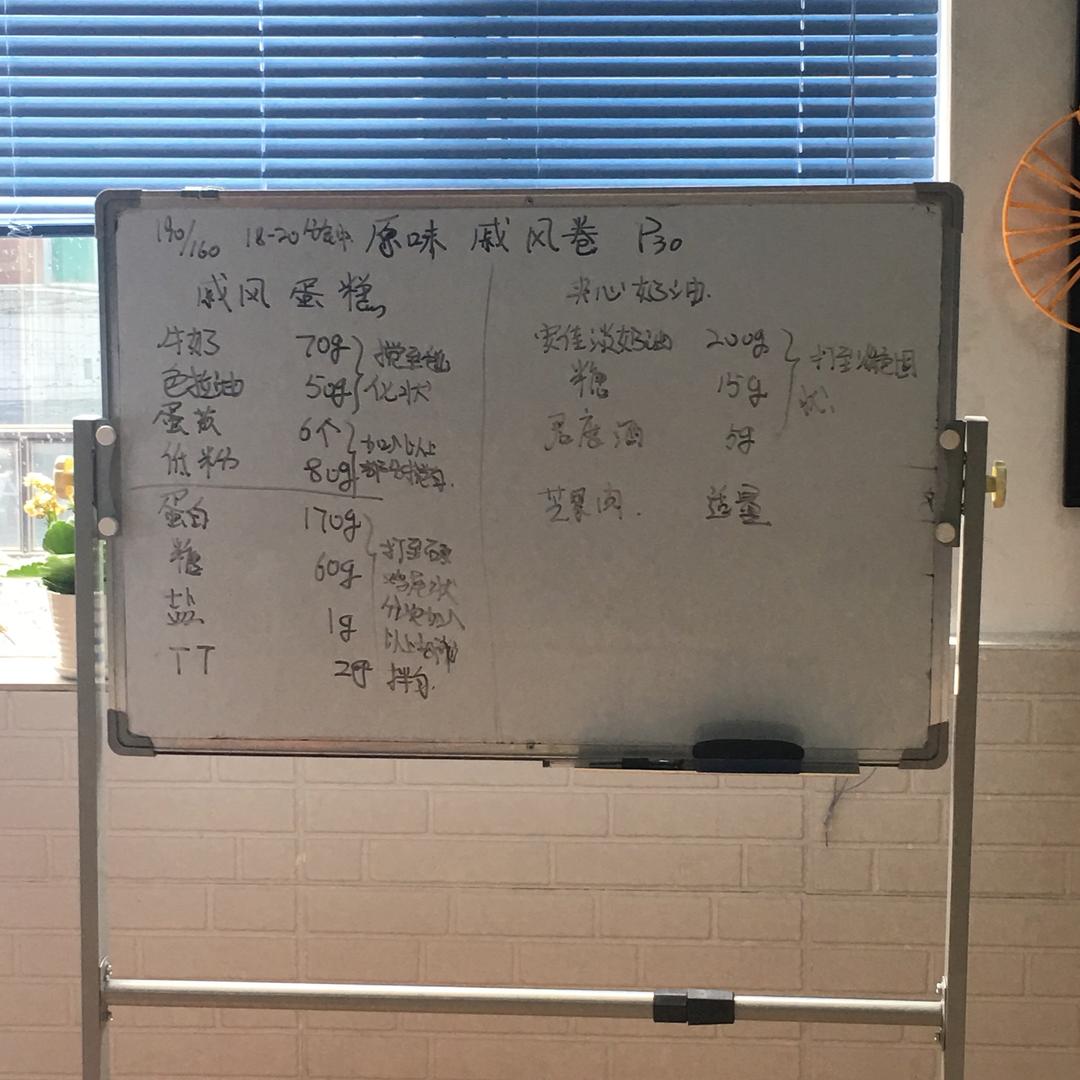 190/160 18-20分钟 原味 戚风卷 P30
戚风蛋糕
牛奶 70g
色拉油 50g
搅至乳
化状
蛋黄 6个
低粉 80g
加入以上
部分搅匀.
蛋白 170g
糖 60g
盐 1g
TT 2g
打至硬
鸡尾状
分次加入
以上部分
拌匀.
夹心奶油.
安佳淡奶油 200g
糖 15g
君度酒 5g
打至
状.
芒果肉. 适量